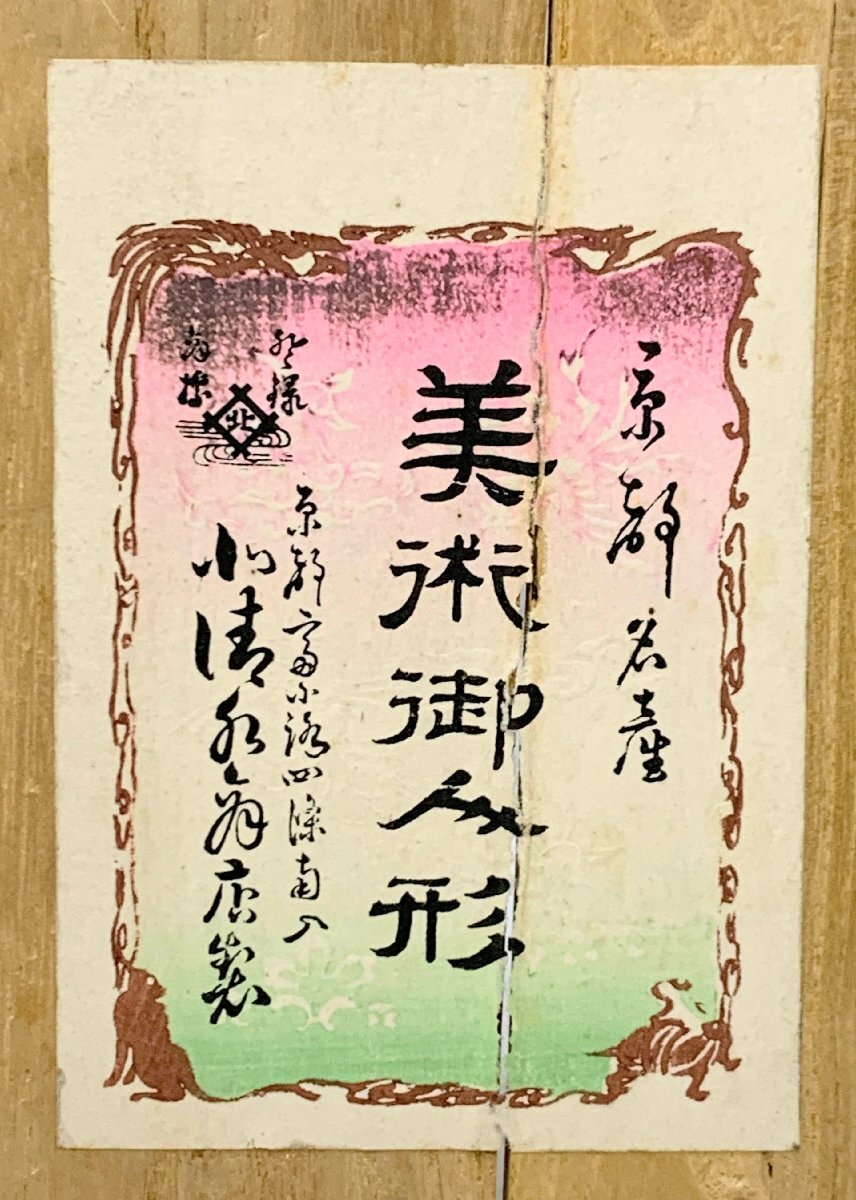 京都名産
美術御人形
登録
商標
北
京都富小路四條南入
北清水商店製